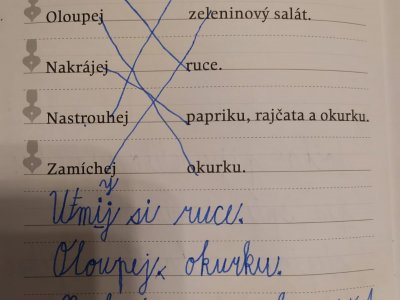 Oloupej zeleninový salát.
Nakrájej ruce.
Nastrouhej papriku, rajčata a okurku.
Zamíchej okurku.
Umij si ruce.
Oloupej okurku.